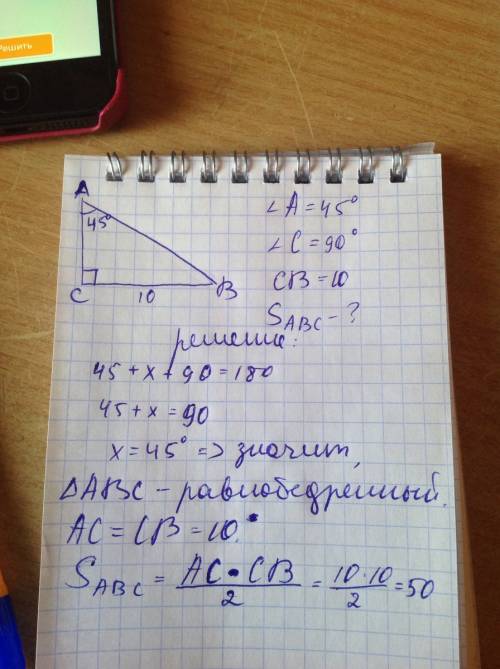 Решить
A
45°
C
10
B
∠A = 45°
∠C = 90°
CB = 10
S ABC - ?
решение:
45 + x + 90 = 180
45 + x = 90
x = 45° => значит,
△ABC - равнобедренный.
AC = CB = 10.
S ABC = AC · CB / 2 = 10 · 10 / 2 = 50